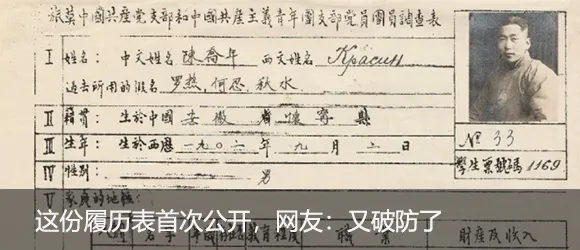 旅莫中國共產党支部和中國共產主義青年團支部党員團員調查表
I 姓名: 中文姓名 陳喬年 西文姓名 Красин
過去所用的假名 罗热, 何忍, 秋水
II 籍貫: 生於中國 安徽 省 懷寧 縣
III 生年: 生於西曆 一九〇二 年 九 月 二 日
IV 性別: 男
№ 33
學生票號碼 1169
V 家庭的地位:
这份履历表首次公开，网友：又破防了
職業 財產及收入